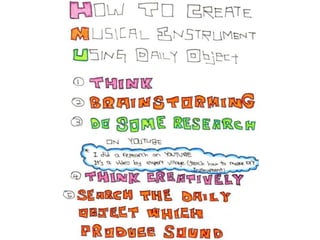 HOW TO CREATE
MUSICAL INSTRUMENT
USING DAILY OBJECT
① THINK
② BRAINSTORMING
③ DO SOME RESEARCH
ON YOUTUBE
I did a research on YOUTUBE
It's a video by expert village (teach how to make an instrument)
④ THINK CREATIVELY
⑤ SEARCH THE DAILY
OBJECT WHICH
PRODUCE SOUND